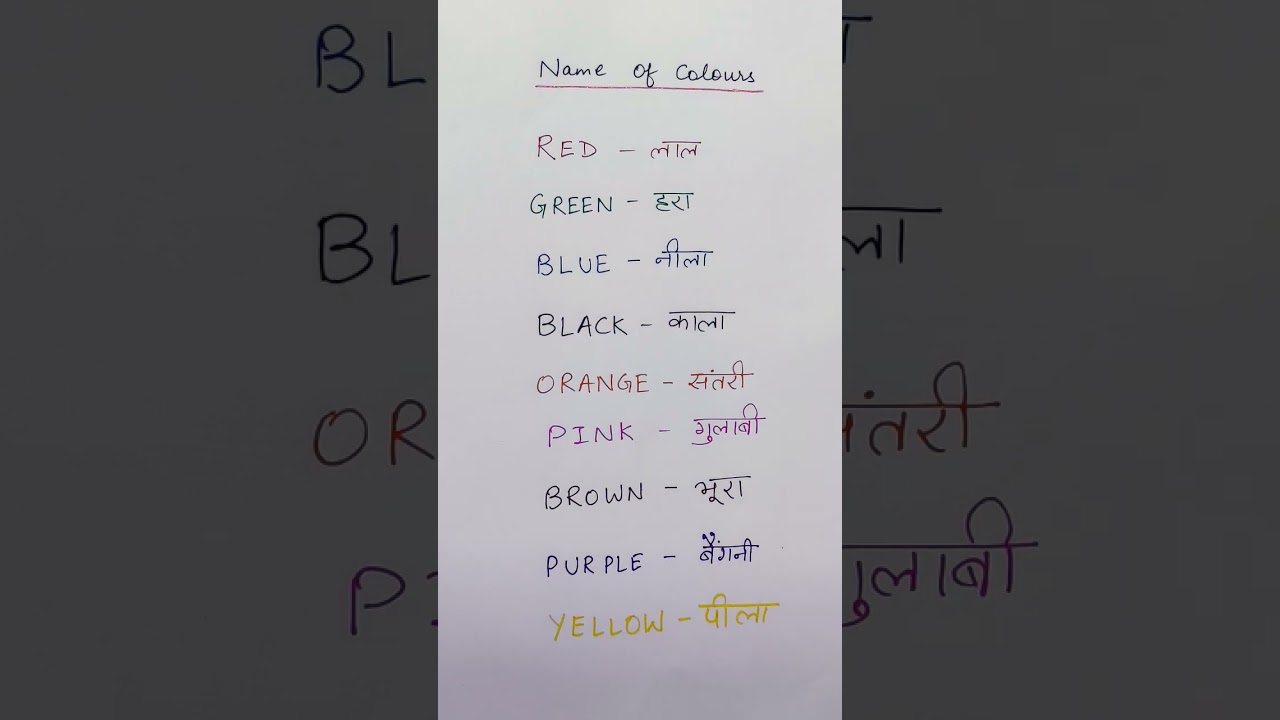 Name of Colours
RED - लाल
GREEN - हरा
BLUE - नीला
BLACK - काला
ORANGE - संतरी
PINK - गुलाबी
BROWN - भूरा
PURPLE - बैंगनी
YELLOW - पीला